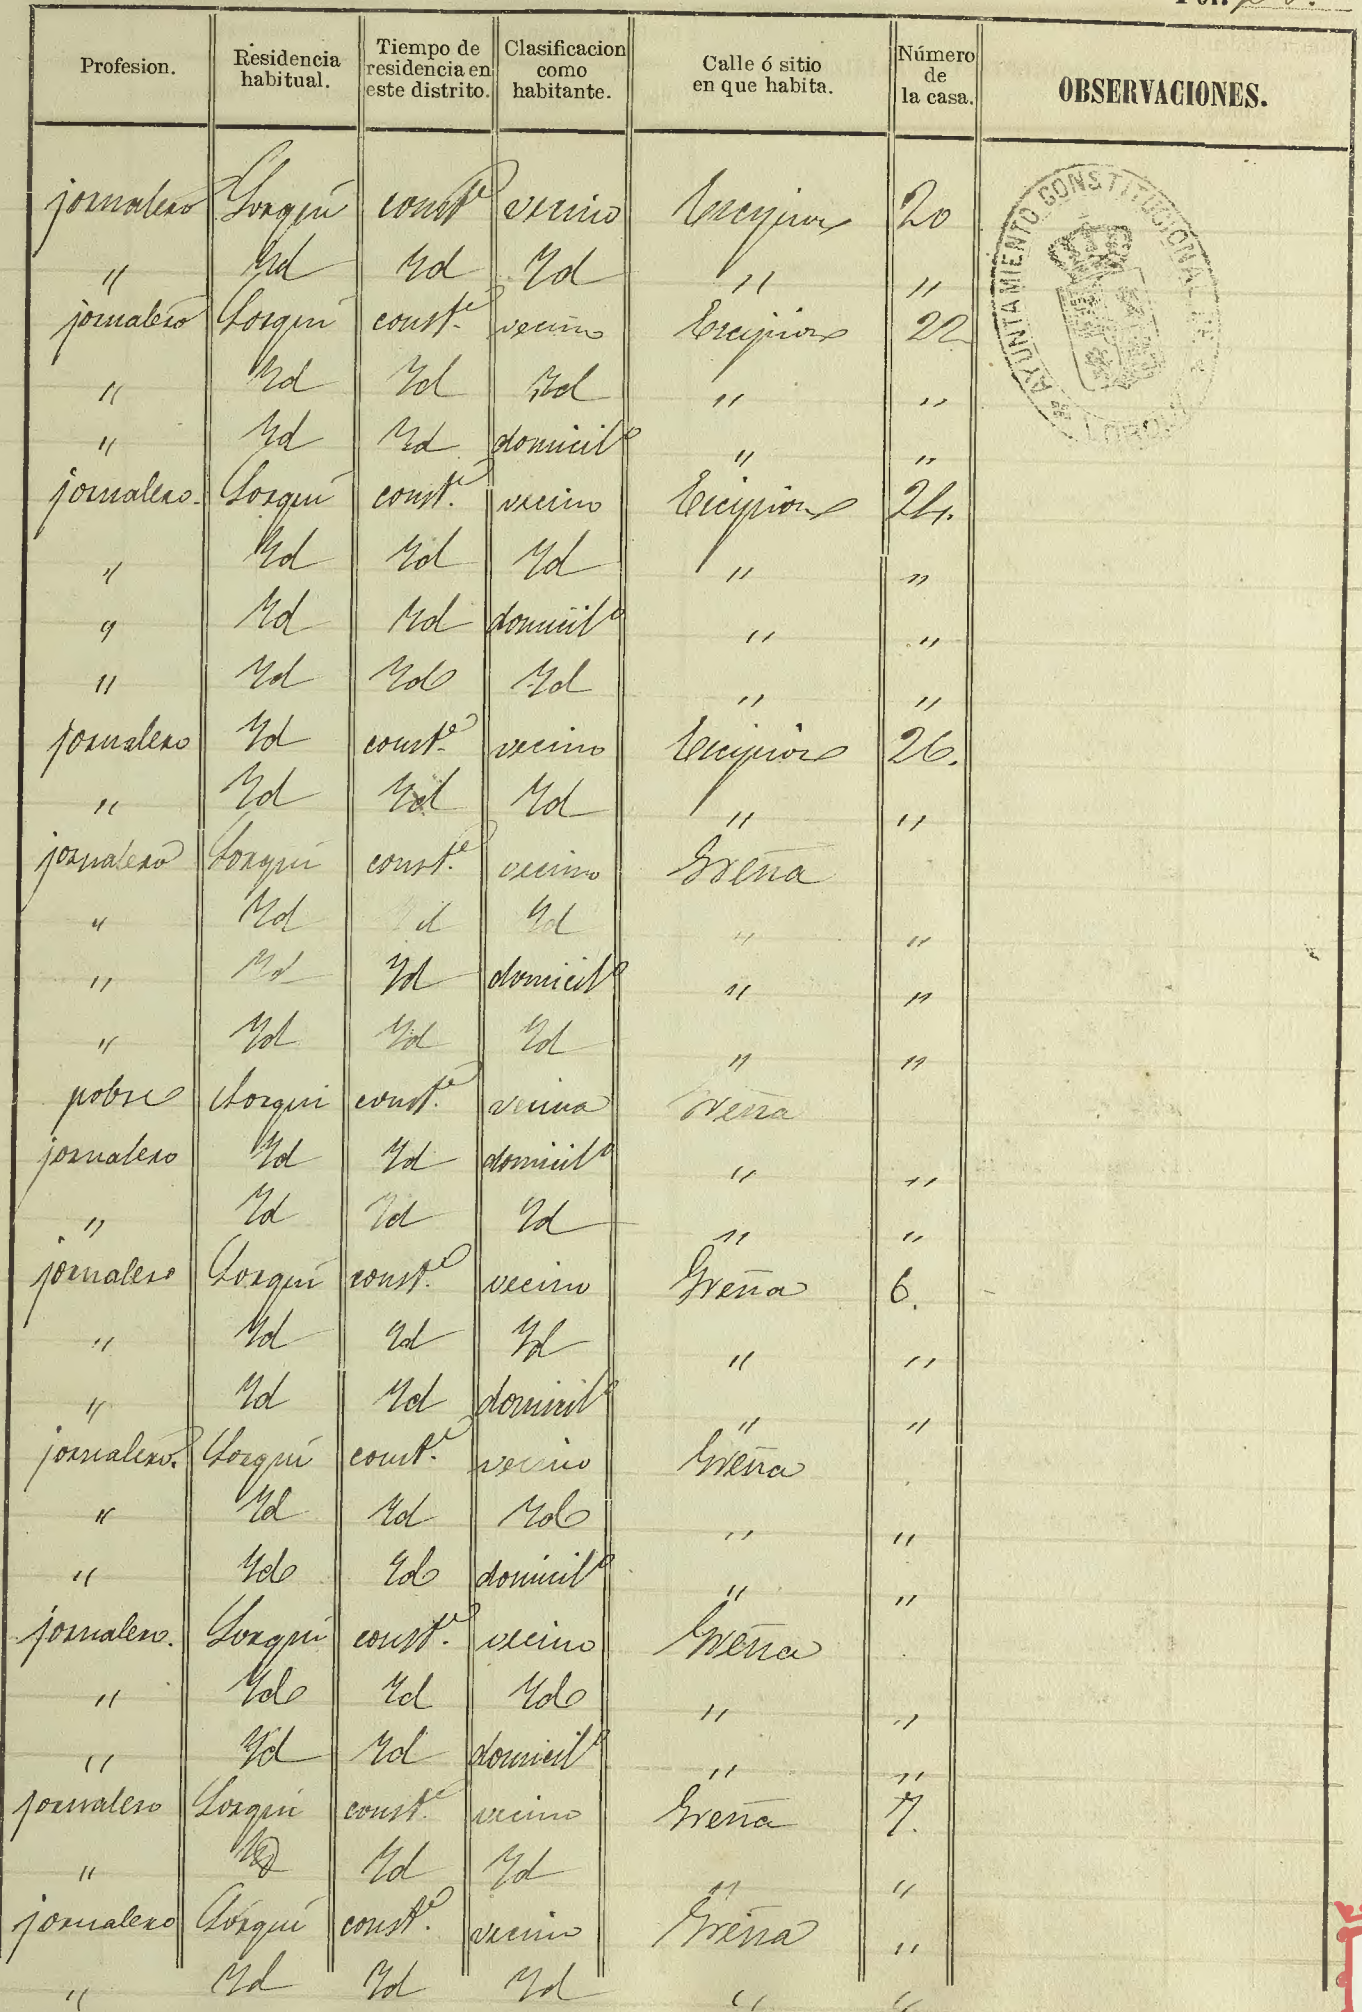 Profesion. Residencia habitual. Tiempo de residencia en este distrito. Clasificacion como habitante. Calle ó sitio en que habita. Número de la casa. OBSERVACIONES.
AYUNTAMIENTO CONSTITUCIONAL DE LORQUÍ
jornalero Lorquí const.e vecino Escipion 20
" Yd Yd Yd " "
jornalero Lorquí const.e vecino Escipion 22
" Yd Yd Yd " "
" Yd Yd domicil.o " "
jornalero. Lorquí const.e vecino Escipion 24.
" Yd Yd Yd " "
" Yd Yd domicil.o " "
" Yd Yd Yd " "
jornalero Yd const.e vecino Escipion 26.
" Yd Yd Yd " "
jornalero Lorquí const.e vecino Greña
" Yd Yd Yd " "
" Yd Yd domicil.o " "
" Yd Yd Yd " "
pobre Lorqui const.e vecina Greña
jornalero Yd Yd domicil.o " "
" Yd Yd Yd " "
jornalero Lorquí const.e vecino Greña 6.
" Yd Yd Yd " "
" Yd Yd domicil.o " "
jornalero. Lorquí const.e vecino Greña
" Yd Yd Yd " "
" Yd Yd domicil.o " "
jornalero. Lorquí const.e vecino Greña
" Yd Yd Yd " "
" Yd Yd domicil.o " "
jornalero Lorquí const.e vecino Greña 7.
" Yd Yd Yd " "
jornalero Lorquí const.e vecino Greña "
" Yd Yd Yd " "